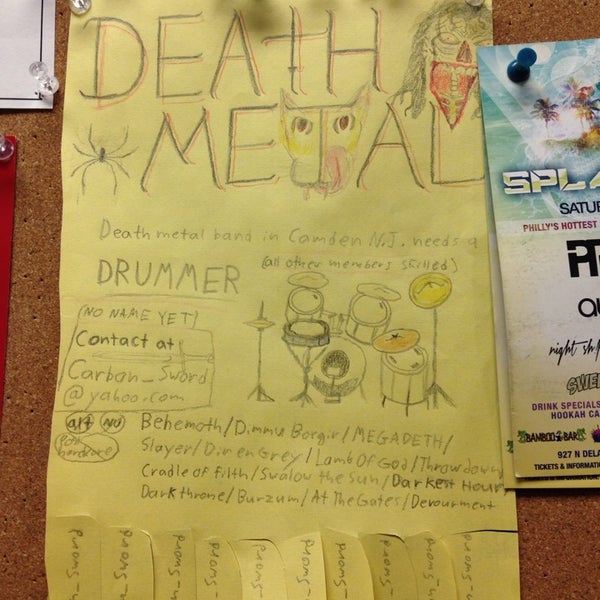 DEATH
METAL
Death metal band in Camden N.J. needs a
DRUMMER (all other members skilled)
NO NAME YET!
Contact at
Carbon_Sword
@yahoo.com
art NO
Post
hardcore
Behemoth/Dimmu Borgir/MEGADETH/
Slayer/Dir en Grey/Lamb Of God/Throwdown
Cradle of Filth/Swalow the Sun/Darkest Hour
Darkthrone/Burzum/At The Gates/Devourment
-Sword
-Sword
-Sword
-Sword
-Sword
-Sword
-Sword
-Sword
-Sword
-Sword
SPLA
SATU
PHILLY'S HOTTEST
night sh
SWE
DRINK SPECIALS
HOOKAH CA
BAMBOO BAR
927 N DELA
TICKETS & INFORMATION